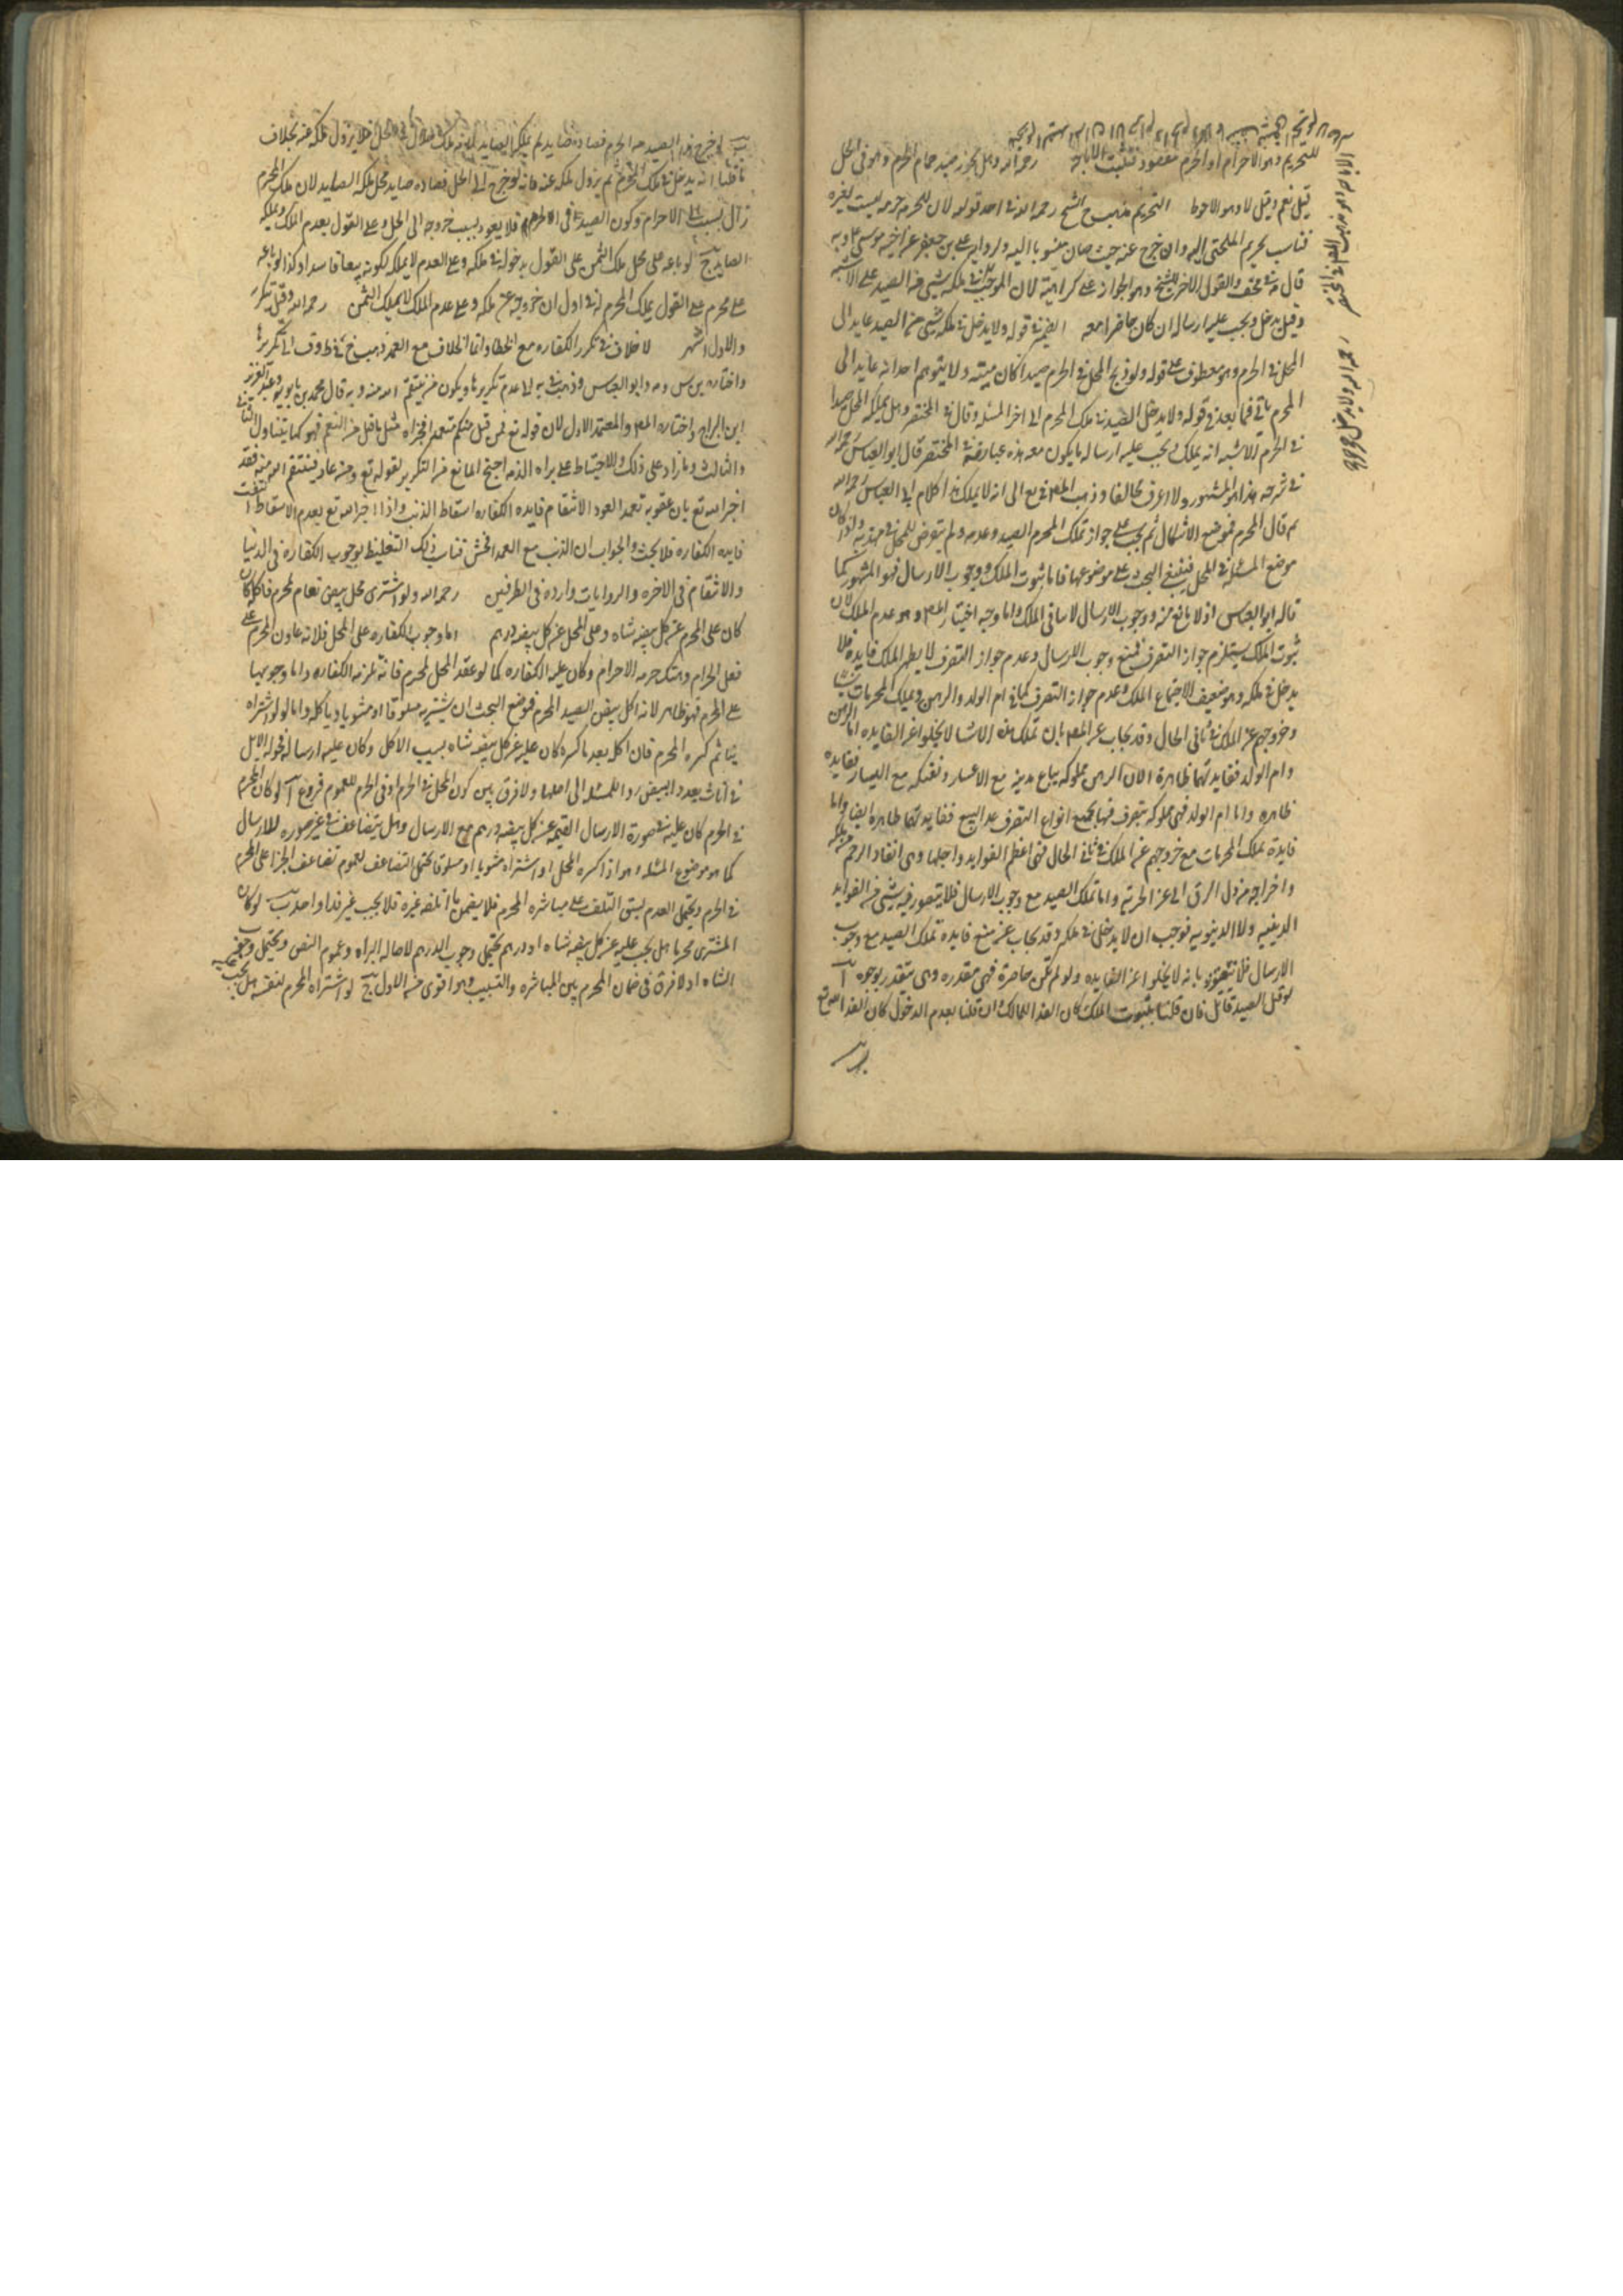 للتحريم وهو الاحرام او الحرم مفقود فتثبت الاباحة رحمه الله وهل يجوز صيد حمام الحرم وهو في الحل
قيل نعم وقيل لا وهو الاحوط التحريم مذهب الشيخ رحمه الله في احد قوليه لان للحرم حرمه ليست لغيره
فناسب تحريم الملتجى اليه وان خرج عنه حيث صار منسوبا اليه ولروايه علي بن جعفر عن اخيه موسى ع وبه
قال في مختلف والقول الاخر للشيخ وهو الجواز على كراهية لان المو في ملكه شيى من الصيد على الاشبه
وقيل يدخل ويجب عليه ارساله ان كان حاضرا معه الضمير في قوله ولا يدخل في ملكه شيى من الصيد عايد الى
المحل في الحرم وهو معطوف على قوله ولو ذبح المحل في الحرم صيدا كان ميتة ولا يتوهم احد انه عايد الى
المحرم ياتي فيما بعد في قوله ولا يدخل الصيد في ملك المحرم الى اخر المسئله وقال في المختصر وهل يملك المحل صيدا
في الحرم الاشبه انه يملك ويجب عليه ارسال ما يكون معه هذه عبارته في المختصر قال ابو العباس رحمه الله
في شرحه هذا هو المشهور ولا اعرف مخالفا وذهب المص في يع الى انه لا يملك هذا كلام ابي العباس رحمه الله
ثم قال المحرم فموضع الاشكال ثم بحث على جواز تملك المحرم الصيد وعدمه ولم يتعرض للمحل في مهذبه ولو كان
موضع المسئلة في المحل فينبغي البحث على موضوعها فاما ثبوت الملك ووجوب الارسال فهو المشهور كما
قاله ابو العباس اذ لا مانع منه ووجوب الارسال لا ينافي الملك واما وجه اختيار المص وهو عدم الملك لان
ثبوت الملك يستلزم جواز التصرف فمع وجوب الارسال وعدم جواز التصرف لا يظهر للملك فايدة فلا
يدخل في ملكه وهو ضعيف لاجتماع الملك وعدم جواز التصرف كما في ام الولد والرهن وتملك المحرمات
وخروجهم عن الملك في ثاني الحال وقد يجاب عن المص بان تملك هذه الاشيا لا يخلوا عن الفايده اما الرهن
وام الولد ففايدتهما ظاهرة لان الرهن مملوكه يباع بدينه مع الاعسار ونفتكه مع اليسار ففايده
ظاهره واما ام الولد فهى مملوكه يتصرف فيها بجميع انواع التصرف عدا البيع ففايدتها ظاهرة ايضا واما
فايدة تملك المحرمات مع خروجهم عن الملك في ثاني الحال فهى اعظم الفوايد واجلها وهى انقاذ الرحم من ملكه
واخراجه من ذل الرق الى عز الحرية واما تملك الصيد مع وجوب الارسال فلا يتصور فيه شيئ من الفوايد
الدينيه ولا الدنيويه فوجب ان لا يدخل في ملكه وقد يجاب عن منع فايده تملك الصيد مع وجوب
الارسال بانه لا يخلوا عن الفايده ولو لم تكن حاضرة فهى مقدره وهى تتقدر بوجوه آ
لو قتل الصيد قاتل فان قلنا بثبوت الملك كان الفدا للمالك وان قلنا بعدم الدخول كان الفدا لله تع
ب لو خرج هذا الصيد من الحرم فصاده صايد لم يملكه الصايد لانه ملك للاول في المحل فلا يزول ملكه عنه بخلاف
ما قلنا انه يدخل في ملك المحرم ثم يزول ملكه عنه فانه لو خرج الى الحل فصاده صايد محل ملكه الصايد لان ملك المحرم
زال بسبب الاحرام وكون الصيد في الحرم فلا يعود بسبب خروجه الى الحل وعلى القول بعدم الملك يملكه
الصايد ج لو باعه على محل ملك الثمن على القول بدخوله في ملكه وعلى العدم لا يملكه لكونه بيعا فاسدا وكذا لو باعه
على محرم على القول يملك المحرم له في اول ان خروجه عن ملكه وعلى عدم الملك لا يملك الثمن رحمه الله وقيل تكرر
والاول اشهر لا خلاف في تكرر الكفاره مع الخطا وانما الخلاف مع العمد ذهب الشيخ في ط وف الى تكررها
واختاره بن س وابو العباس وذهب في يه الى عدم تكريرها ويكون فمن ينتقم الله منه وبه قال محمد بن بابويه وعبد العزيز
ابن البراج واختاره المص والمعتمد الاول لان قوله تع فمن قتل منكم متعمدا فجزاء مثل ما قتل من النعم فهو كما يتناول الثاني
والثالث وما زاد على ذلك والاحتياط على براه الذمه احتج المانع من التكرير لقوله تع ومن عاد فينتقم الله منه فقد
اخبر الله تع بان عقوبه تعمد العود الانتقام فايده الكفاره اسقاط الذنب واذا اخبر الله تع بعدم الاسقاط انتفت
فايده الكفاره فلا يجب والجواب ان الذنب مع العمد افحش فناسب ذلك التغليظ بوجوب الكفاره في الدنيا
والانتقام في الاخره والروايات وارده في الطرفين رحمه الله ولو اشترى محل بيض نعام لمحرم فاكله كان
كان على المحرم عن كل بيضه شاه وعلى المحل عن كل بيضه درهم اما وجوب الكفاره على المحل فلانه عاون المحرم على
فعل الحرام وهتك حرمه الاحرام وكان عليه الكفاره كما لو عقد المحل لمحرم فانه تلزمه الكفاره واما وجوبها
على المحرم فهو ظاهر لانه اكل بيض الصيد المحرم فموضع البحث ان يشتريه مسلوقا او مشويا وياكله واما لو اشتراه
نيا ثم كسره المحرم فان اكل بعد ما كسره كان عليه عن كل بيضه شاه بسبب الاكل وكان عليه ارسال فحوله الابل
في اناث بعدد البيض ردا للمسئله الى اصلها ولا فرق بين كون المحل في الحرم او في الحرم للعموم فروع آ لو كان المحرم
في الحرم كان عليه في صورة الارسال القيمه عن كل بيضه درهم مع الارسال وهل يتضاعف في غير صوره الارسال
كما هو موضوع المسئله وهو اذا كسره المحل او اشتراه مشويا او مسلوقا يحتمل التضاعف لعموم تضاعف الجزا على المحرم
في الحرم ويحتمل العدم لسبق التلف على مباشره المحرم فلا يضمن ما اتلفه غيره فلا يجب غير فدا واحد ب لو كان
المشترى محرما هل يجب عليه عن كل بيضه شاه او درهم يحتمل وجوب الدرهم لاصاله البراه وعموم النص ويحتمل وجوب
الشاه اذ لا فرق في ضمان المحرم بين المباشره والتسبيب وهو اقوى من الاول ج لو اشتراه المحرم لنفسه هل يجب